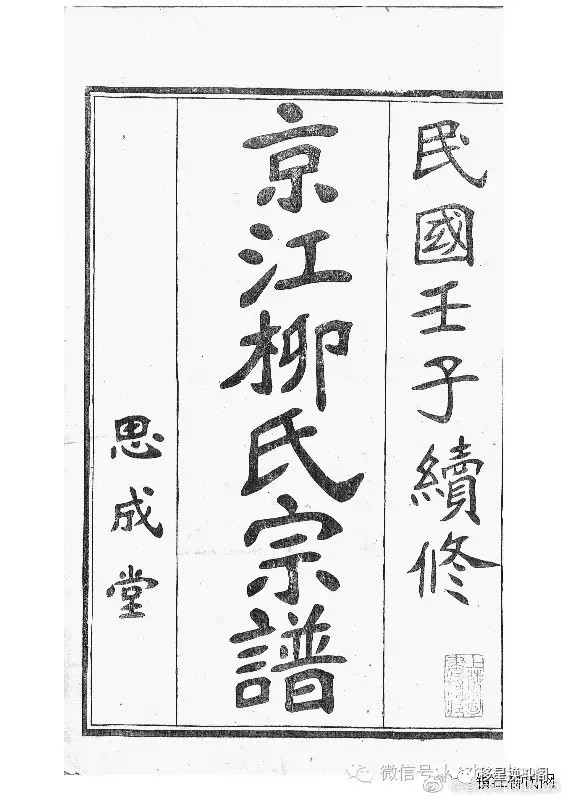 民國壬子續修
京江柳氏宗譜
思成堂
微信号: